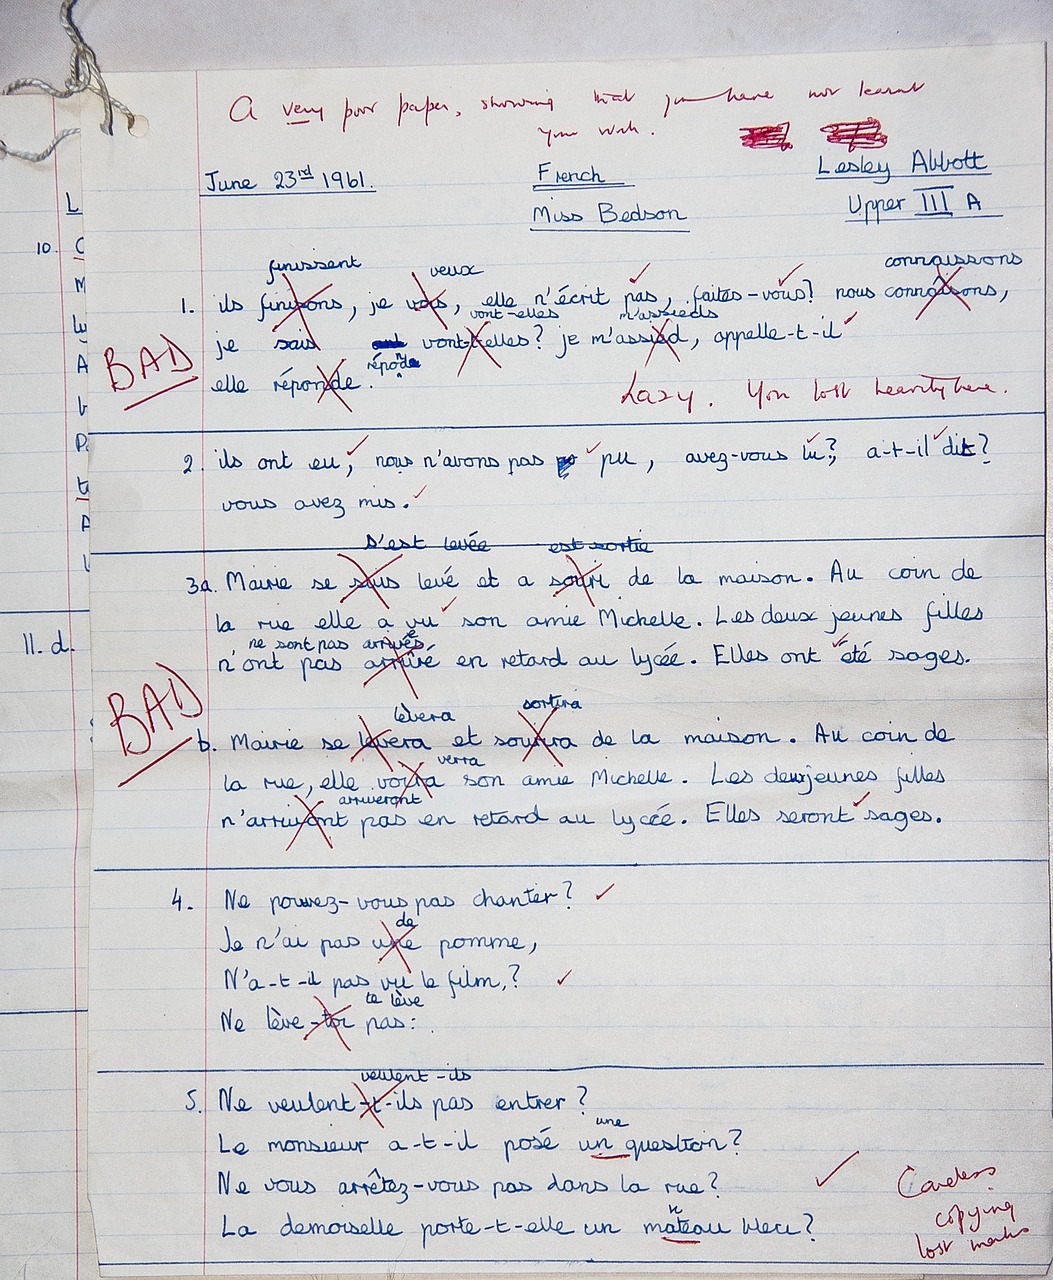 A very poor paper, showing that you have not learnt
your work.
June 23rd 1961.
French
Lesley Abbott
Miss Bedson
Upper III A
L
10.
C
M
A
P
A
11. d.
finissent veux connaissons
1. ils finisons, je vois, elle n'écrit pas, faites-vous? nous connaisons,
vont-elles m'assieds
je sais vont-t-elles? je m'assied, appelle-t-il
BAD
réponde
elle réponde.
Lazy. You lost heavily here.
2. ils ont eu, nous n'avons pas pu, avez-vous lu?, a-t-il dit?
vous avez mis.
s'est levée est sortie
3a. Mairie se suis levé et a souri de la maison. Au coin de
la rue elle a vu son amie Michelle. Les deux jeunes filles
ne sont pas arrivées
n'ont pas arrivé en retard au lycée. Elles ont été sages.
BAD
lèvera sortira
b. Mairie se levera et sourira de la maison. Au coin de
verra
la rue, elle voira son amie Michelle. Les deux jeunes filles
arriveront
n'arrivont pas en retard au lycée. Elles seront sages.
4. Ne pouvez-vous pas chanter?
de
Je n'ai pas une pomme,
N'a-t-il pas vu le film,?
te lève
Ne lève-toi pas:
veulent-ils
5. Ne veulent-t-ils pas entrer?
une
Le monsieur a-t-il posé un question?
Ne vous arrêtez-vous pas dans la rue?
n
La demoiselle porte-t-elle un mateau bleu?
Careless
copying
lost marks